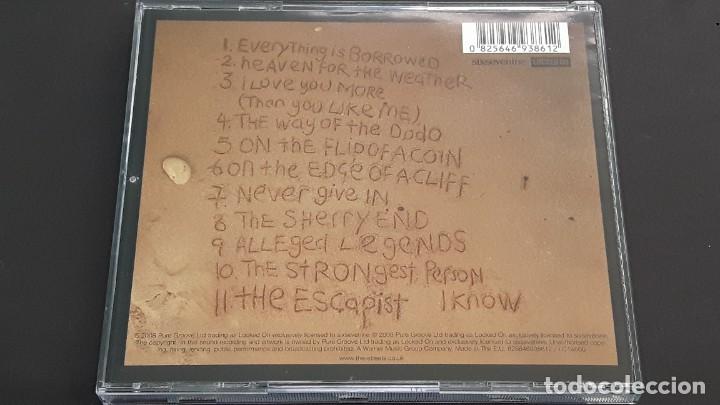 1. EVERYTHING is BORROWED
2. HEAVEN FOR THE WEATHER
3. I LOVE YOU MORE
(Than you LIKE ME)
4. THE WAY OF the DODO
5 ON the FLIP OF A COIN
6 ON the EDGE OF A CLIFF
7. Never give IN
8 THE SHERRY END
9 ALLEGED LEGENDS
10. THE STRONGEST PERSON
I KNOW
11. the ESCAPIST
0 825646 938612
sixsevenine
℗ 2008 Pure Groove Ltd trading as Locked On exclusively licensed to sixsevenine. © 2008 Pure Groove Ltd trading as Locked On, exclusively licensed to sixsevenine.
The copyright in this sound recording and artwork is owned by Pure Groove Ltd trading as Locked On and exclusively licensed to sixsevenine. Unauthorised copying,
hiring, lending, public performance and broadcasting prohibited. A Warner Music Group Company. Made in The E.U. 825646938612
www.the-streets.co.uk
todocoleccion
todocoleccion.net